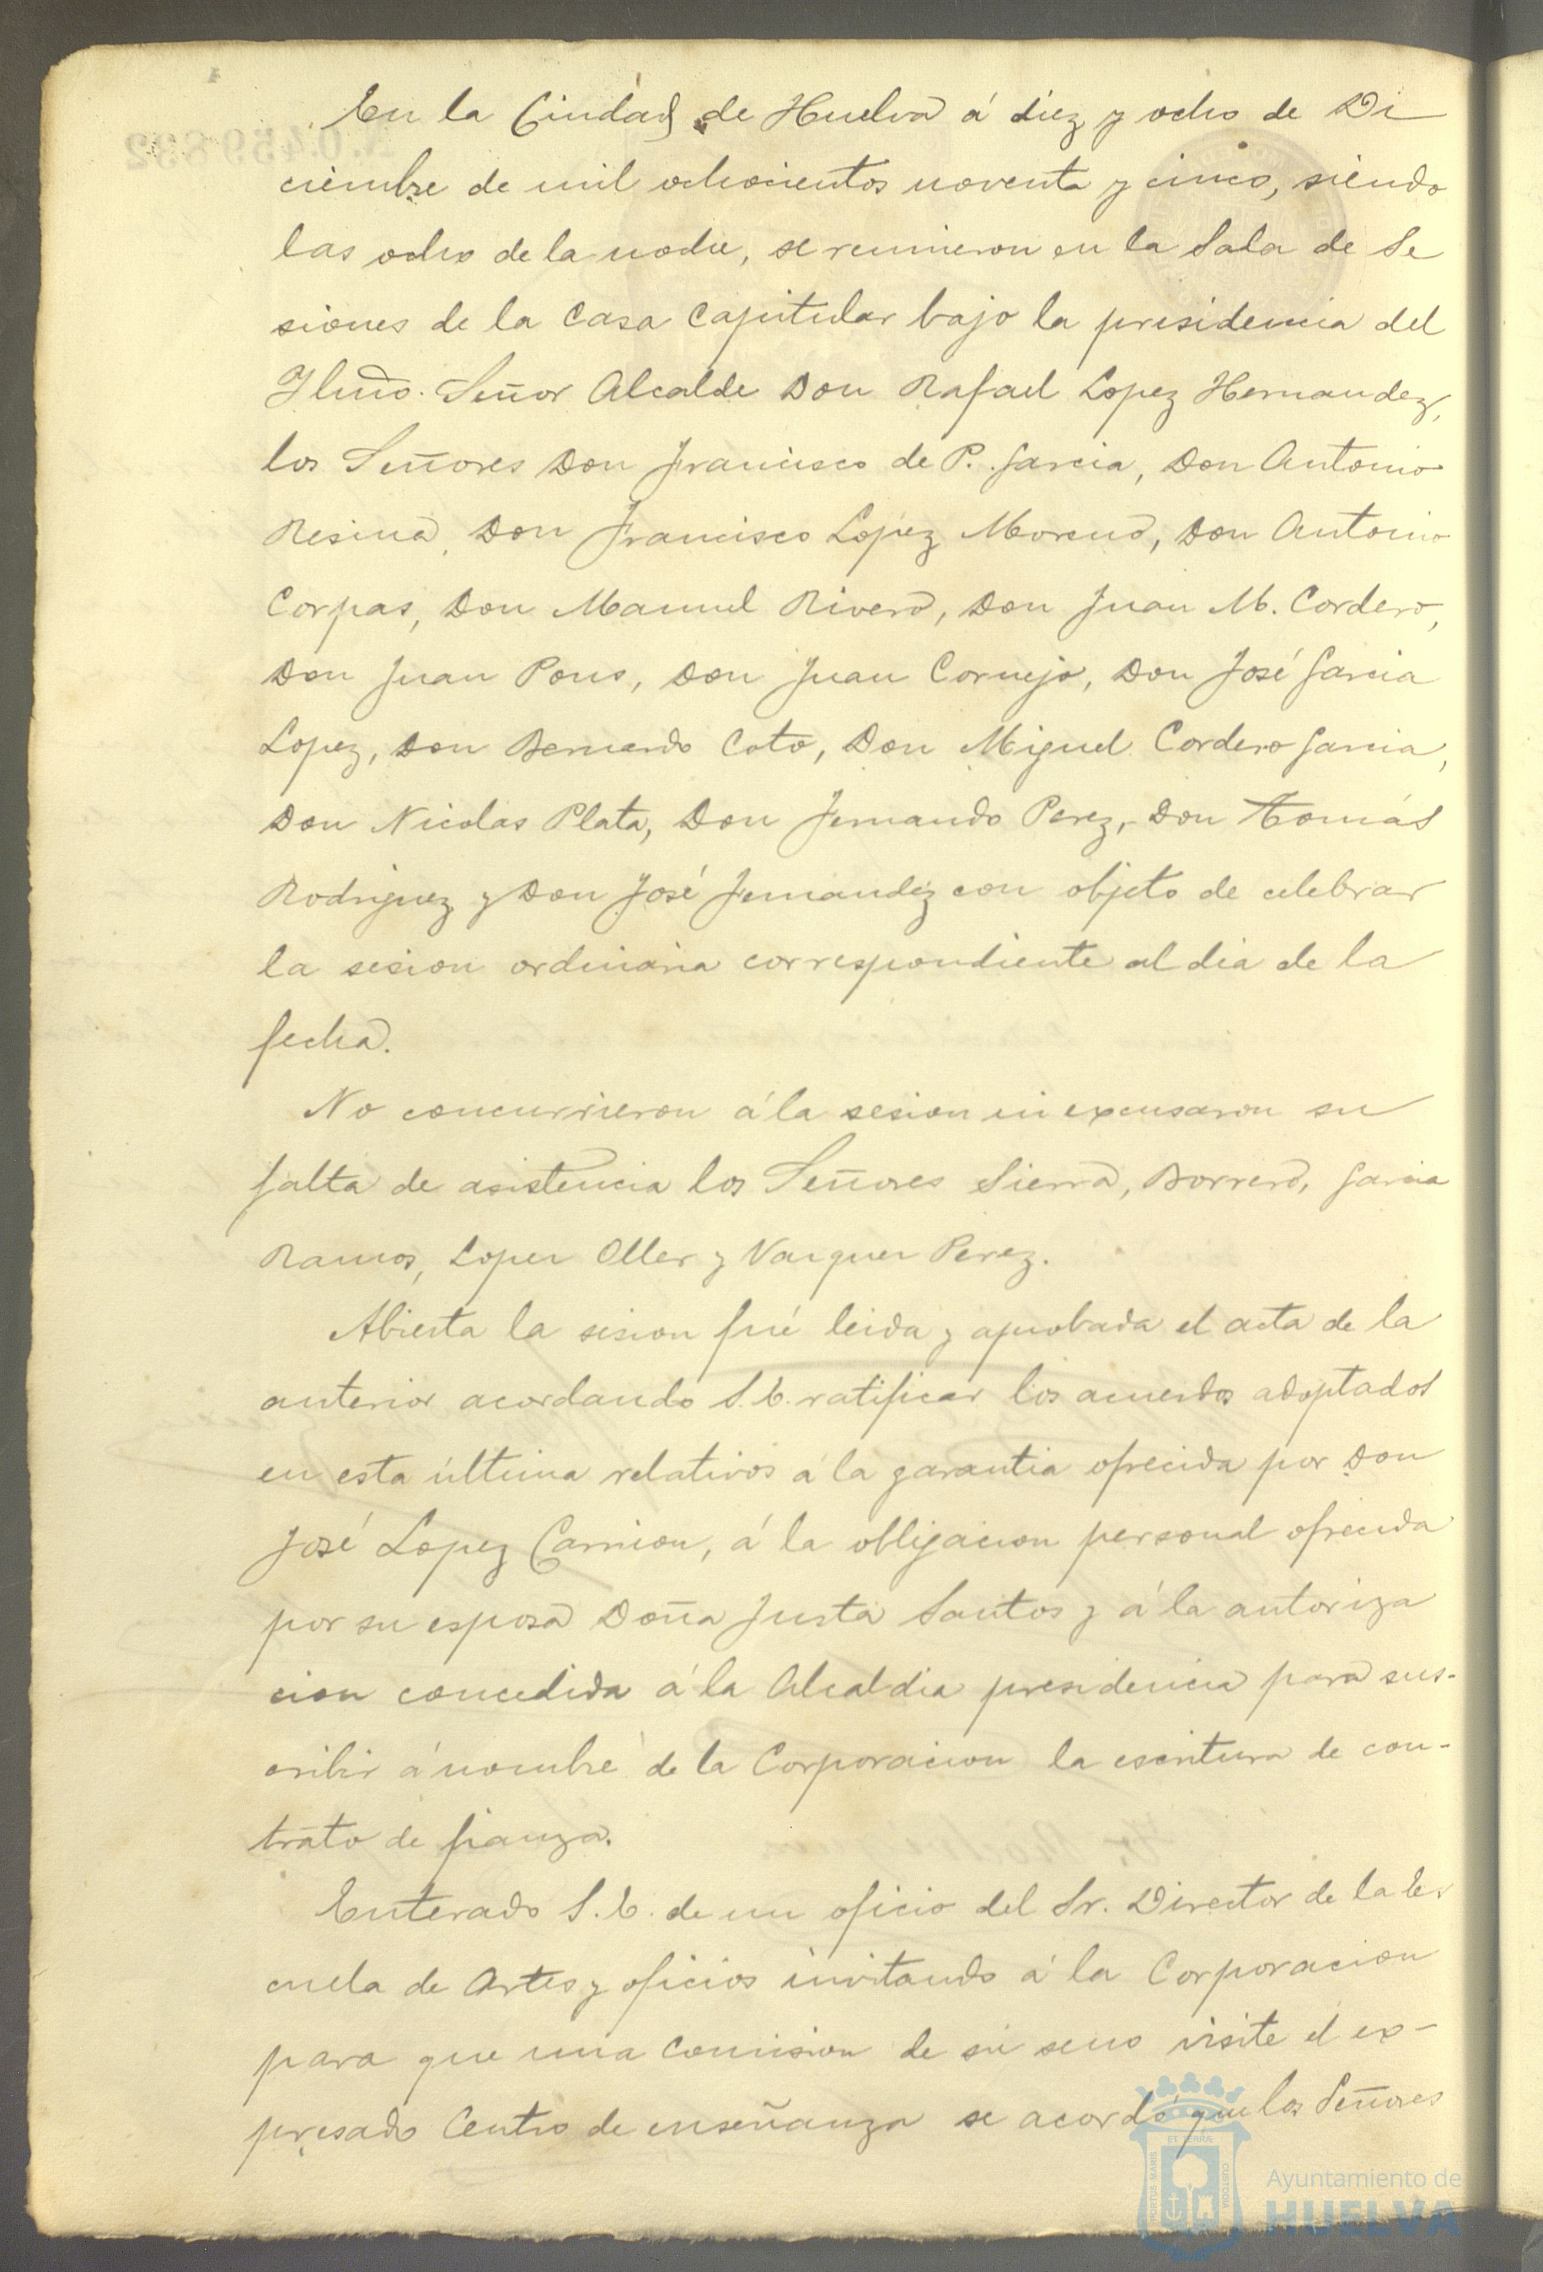 En la Ciudad de Huelva á diez y ocho de Di
ciembre de mil ochocientos noventa y cinco, siendo
las ocho de la noche, se reunieron en la Sala de Se
siones de la Casa Capitular bajo la presidencia del
Ylmo. Señor Alcalde Don Rafael Lopez Hernandez,
los Señores Don Francisco de P. Garcia, Don Antonio
Resina, Don Francisco Lopez Moreno, Don Antonio
Corpas, Don Manuel Rivero, Don Juan M. Cordero,
Don Juan Pons, Don Juan Cornejo, Don José Garcia
Lopez, Don Bernardo Coto, Don Miguel Cordero Garcia,
Don Nicolas Plata, Don Fernando Perez, Don Tomás
Rodriguez y Don José Fernandez con objeto de celebrar
la sesion ordinaria correspondiente al dia de la
fecha.
No concurrieron á la sesion ni excusaron su
falta de asistencia los Señores Sierra, Borrero, Garcia
Ramos, Lopez Oller y Vazquez Perez.
Abierta la sesion fué leida y aprobada el acta de la
anterior acordando S. E. ratificar los acuerdos adoptados
en esta última relativos á la garantia ofrecida por Don
José Lopez Carrion, á la obligacion personal ofrecida
por su esposa Doña Justa Santos y á la autoriza
cion concedida á la Alcaldia presidencia para sus-
cribir á nombre de la Corporacion la escritura de con-
trato de fianza.
Enterado S. E. de un oficio del Sr. Director de la Es
cuela de Artes y oficios invitando á la Corporacion
para que una Comision de su seno visite el ex-
presado Centro de enseñanza se acordó que los Señores
PORTUS MARIS ET TERRÆ CUSTODIA
Ayuntamiento de
HUELVA